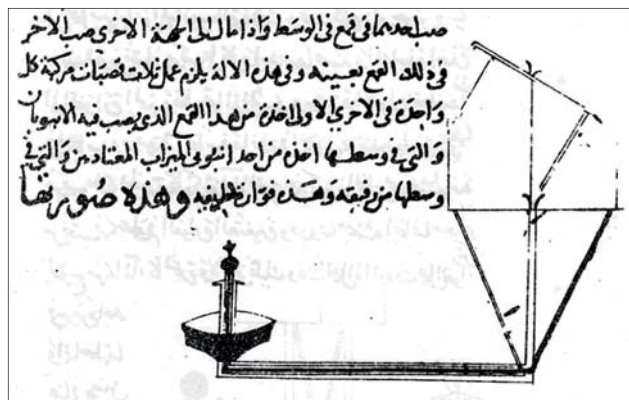 صب احدهما في قمع في الوسط واذا مال الى الجهة الاخرى صب الاخر
في ذلك القمع بعينه وفي هذه الالة يلزم عمل ثلاث قصبات مركبة كل
واحدة في الاخرى الاولى اخذة من هذا القمع الذي يصب فيه الانبوبان
والتي في وسطها اخذة من احد انبوبي الميزاب المعتاد من والتي في
وسطها من رفيقه وهذه فوارة لطيفة وهذه صورتها